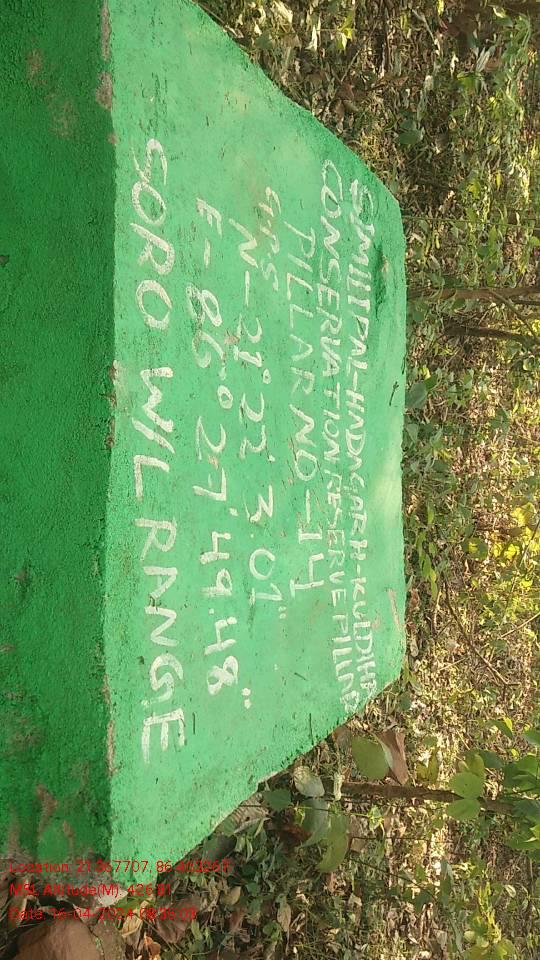 SIMILIPAL-HADAGARH-KULDIHA
CONSERVATION RESERVE PILLAR
PILLAR NO-14
GPS
N-21°22'3.01"
E-86°27'49.48"
SORO W/L RANGE
Location: 21.367707, 86.463267
MSL Altitude(M): 426.81
Date: 16-04-2024